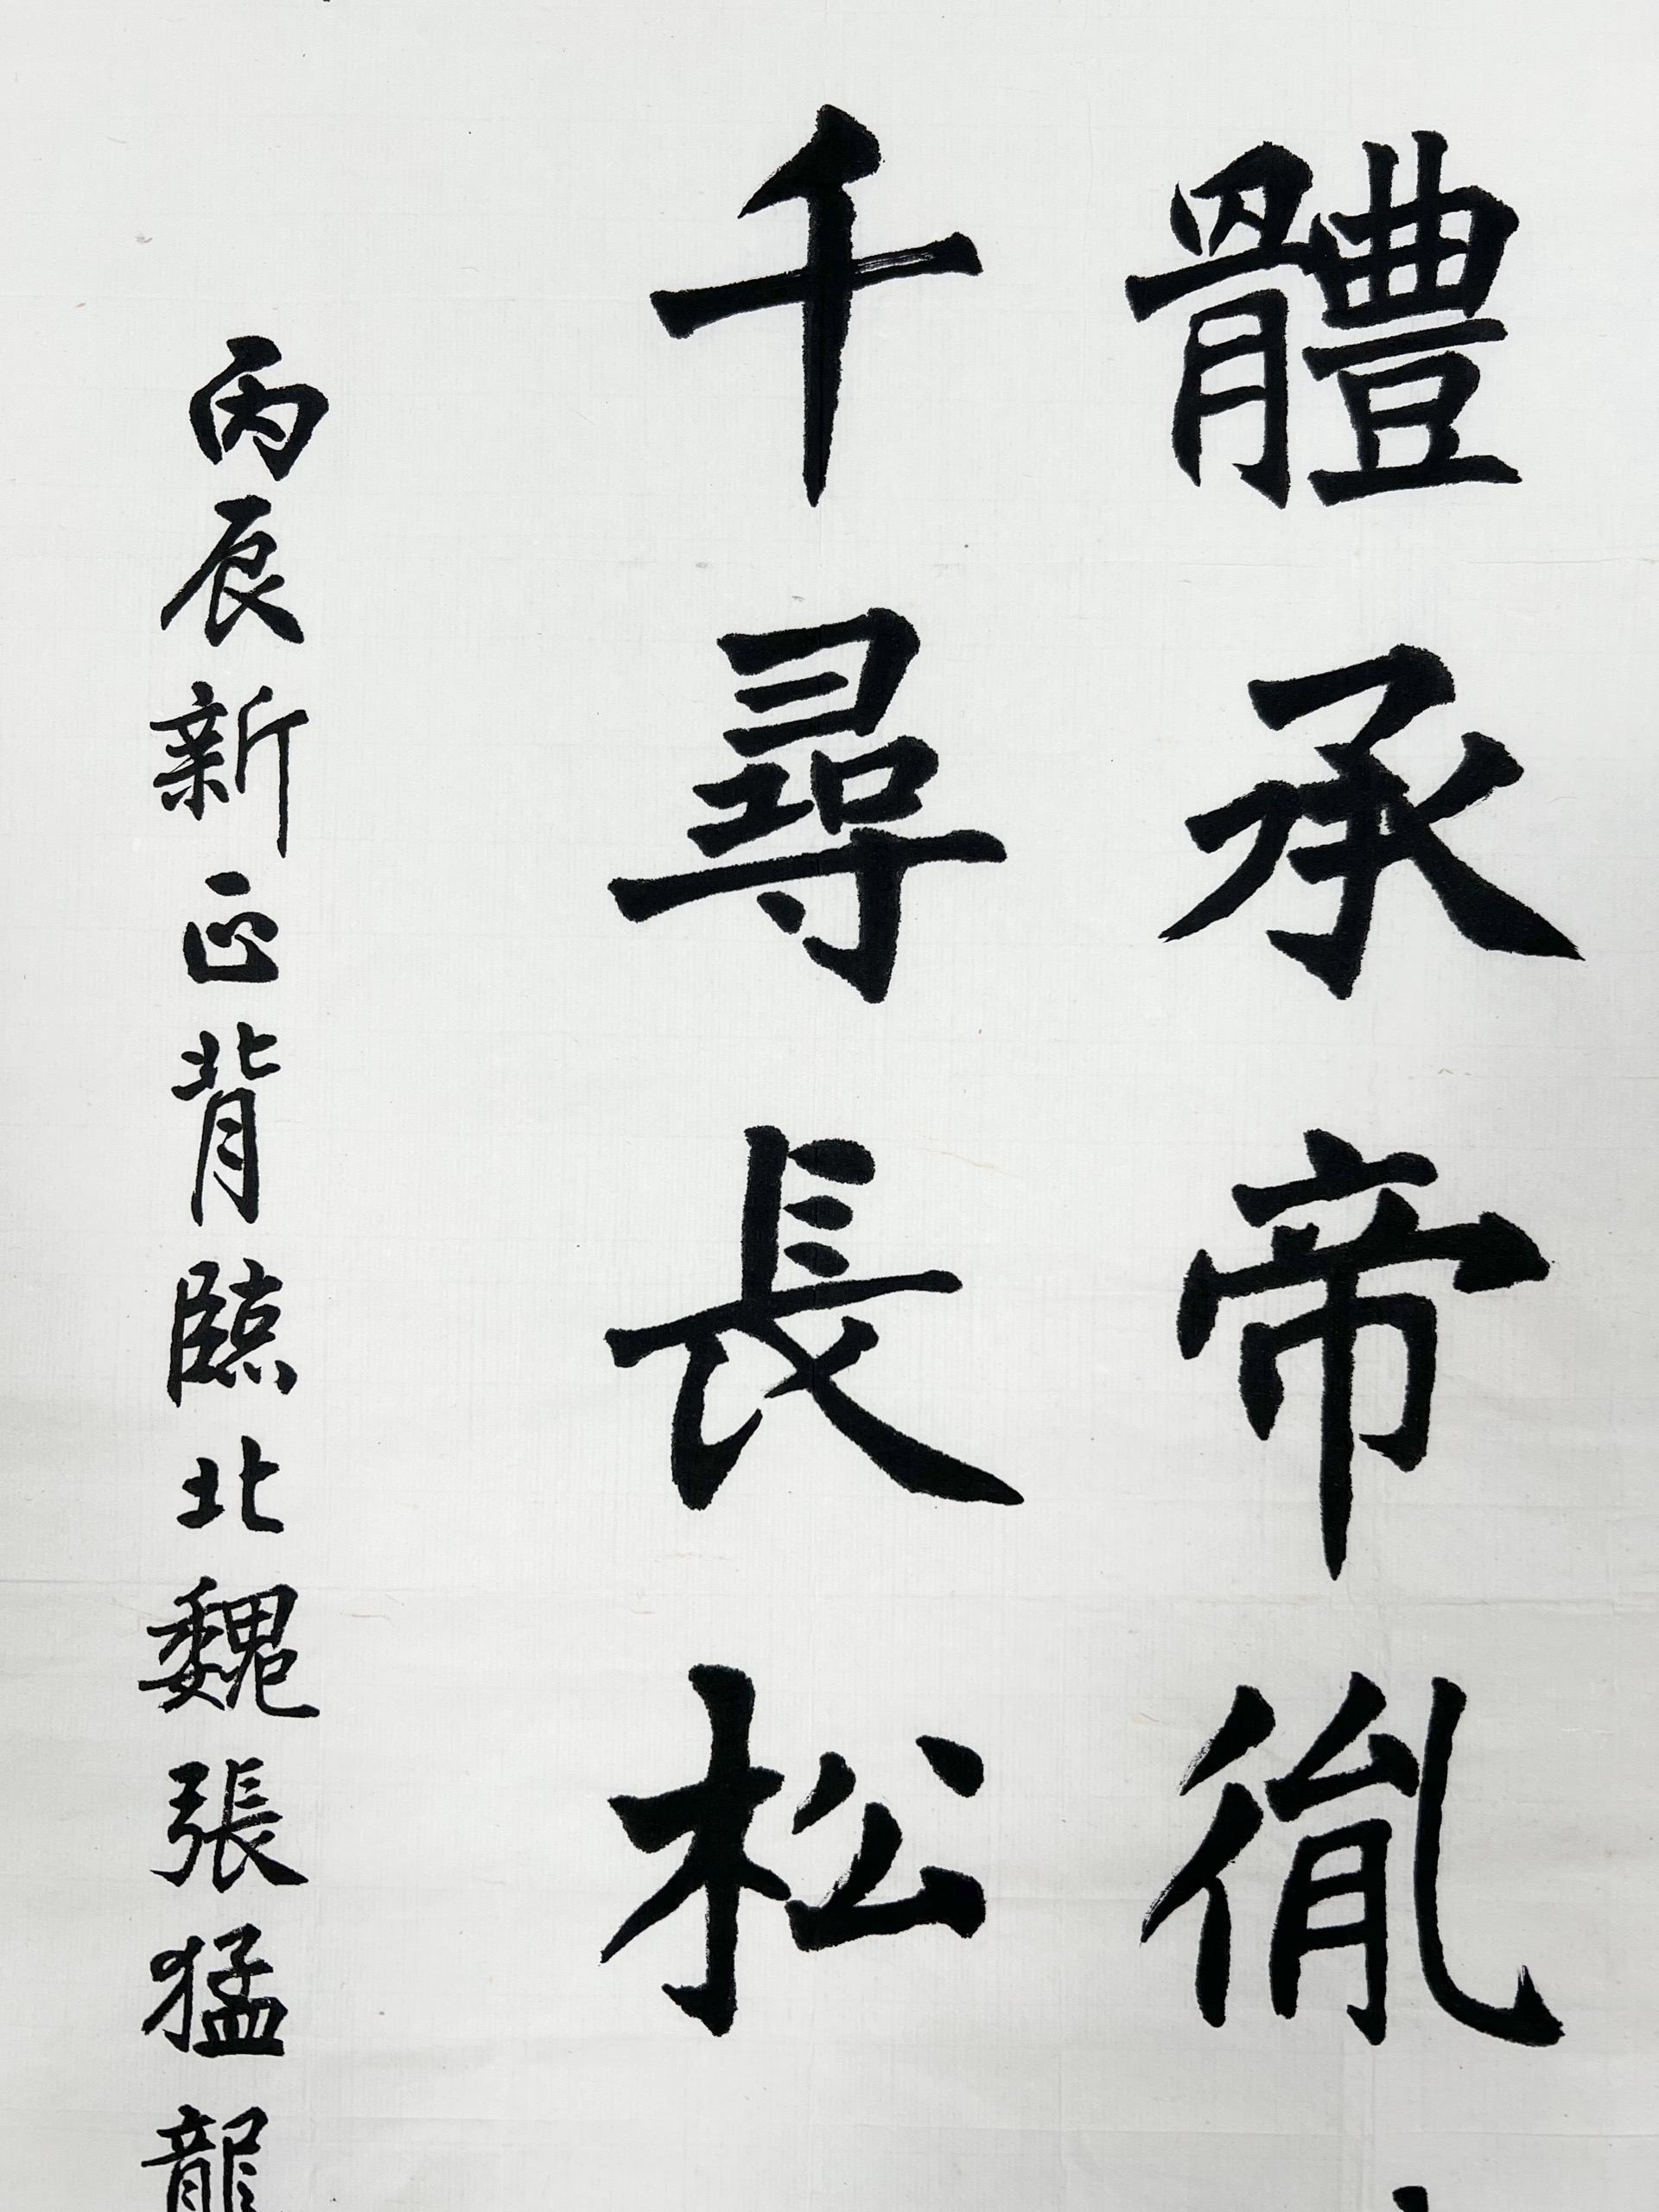 體承帝胤
千尋長松
丙辰新正背臨北魏張猛龍